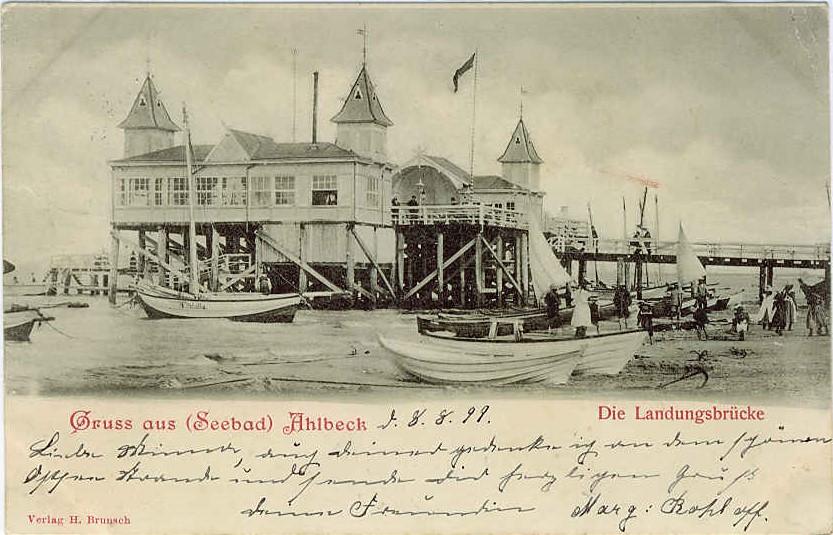 Gruss aus (Seebad) Ahlbeck d. 8. 8. 99.
Die Landungsbrücke
Liebe Minna, auf deiner gedenke ich an dem schönen
Ostsee Strande und sende dir herzlichen Gruß
deine Freundin Marg: Kohloff.
Verlag H. Brunsch